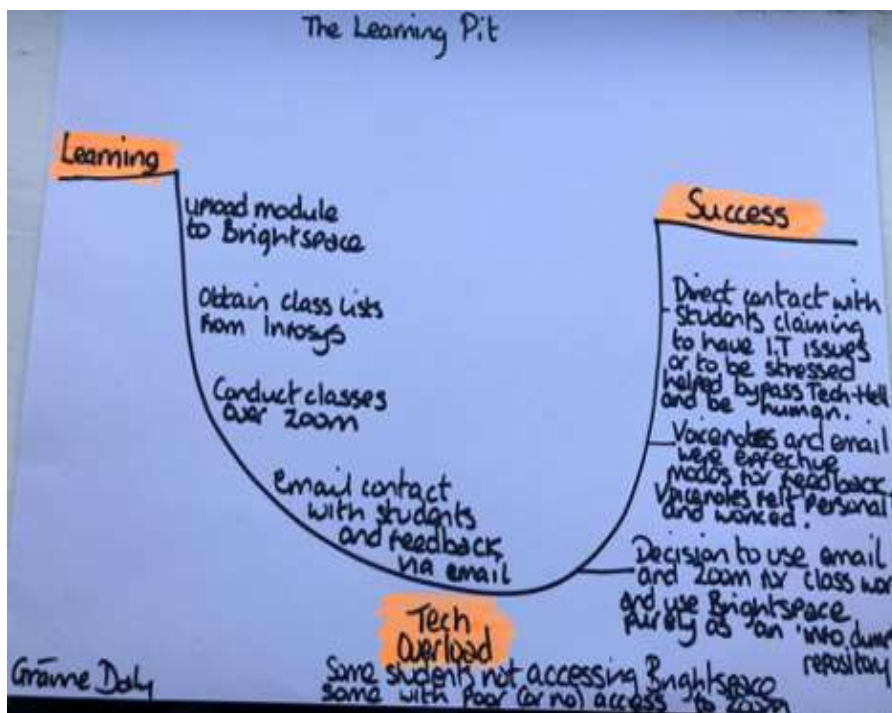 The Learning Pit
Learning
upload module
to Brightspace
Obtain class lists
from Infosys
Conduct classes
over Zoom
Email contact
with students
and feedback
via email
Tech
Overload
Some students not accessing Brightspace
some with poor (or no) access to Zoom
Success
Direct contact with
students claiming
to have I.T issues
or to be stressed
helped bypass Tech-Hell
and be human.
Voicenotes and email
were effective
modes for feedback
Voicenotes felt personal
and worked.
Decision to use email
and Zoom for class wor
and use Brightspace
purely as an 'info dump
repository
Gráinne Daly